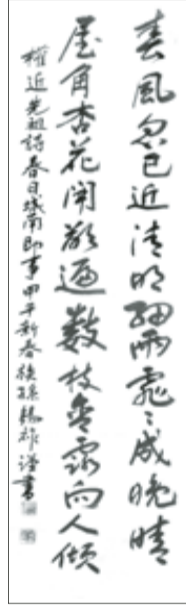 春風忽已近清明細雨霏〻成晚晴
屋角杏花開欲遍數枝含露向人傾
權近先祖詩春日城南即事甲午新春後孫祚謹書